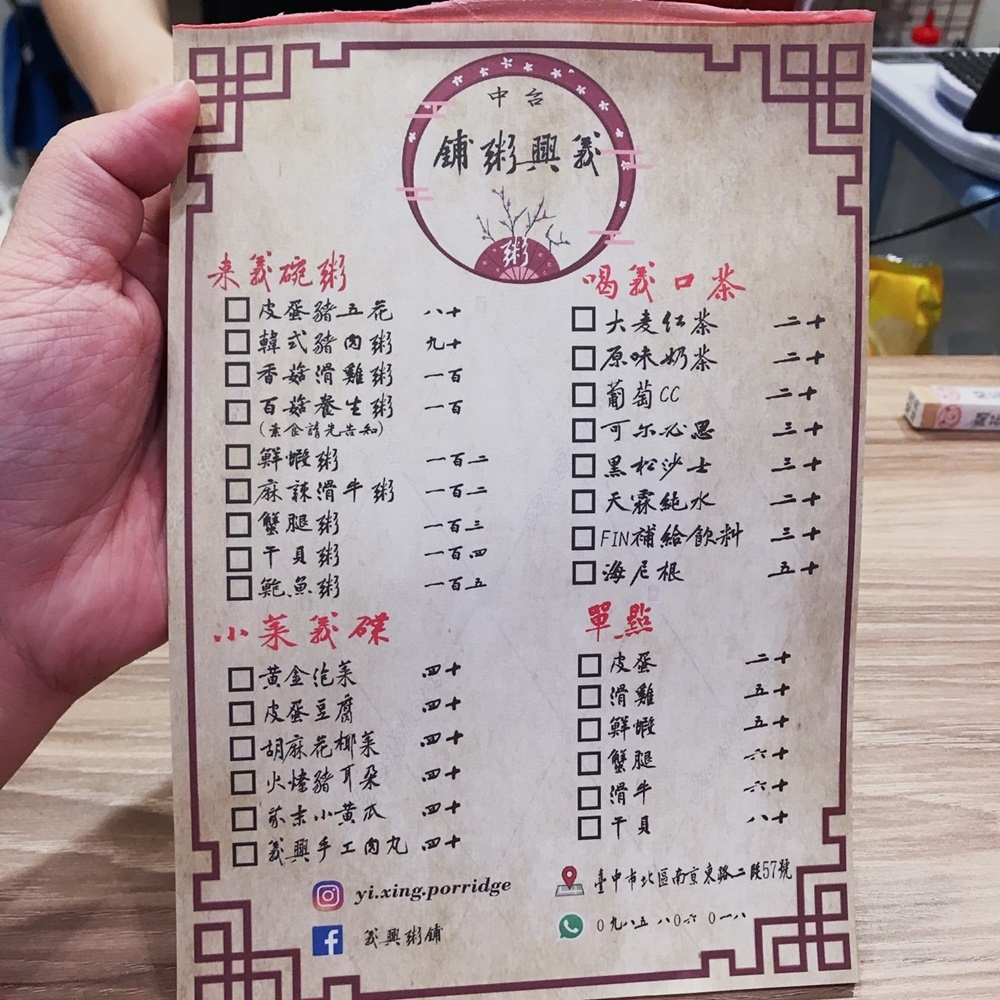 中台
鋪粥興義
粥
來義碗粥
皮蛋豬五花 八十
韓式豬肉粥 九十
香菇滑雞粥 一百
百菇養生粥 一百
(素食請先告知)
鮮蝦粥 一百二
麻辣滑牛粥 一百二
蟹腿粥 一百三
干貝粥 一百四
鮑魚粥 一百五
喝義口茶
大麦红茶 二十
原味奶茶 二十
葡萄CC 二十
可尔必思 三十
黑松沙士 三十
天霖純水 二十
FIN補給飲料 三十
海尼根 五十
小菜義碟
黃金泡菜 四十
皮蛋豆腐 四十
胡麻花椰菜 四十
火燎豬耳朵 四十
蒜末小黃瓜 四十
義興手工肉丸 四十
單點
皮蛋 二十
滑雞 五十
鮮蝦 五十
蟹腿 六十
滑牛 六十
干貝 八十
yi.xing.porridge
義興粥鋪
臺中市北區南京東路二段57號
0九八五 八0六 0一八